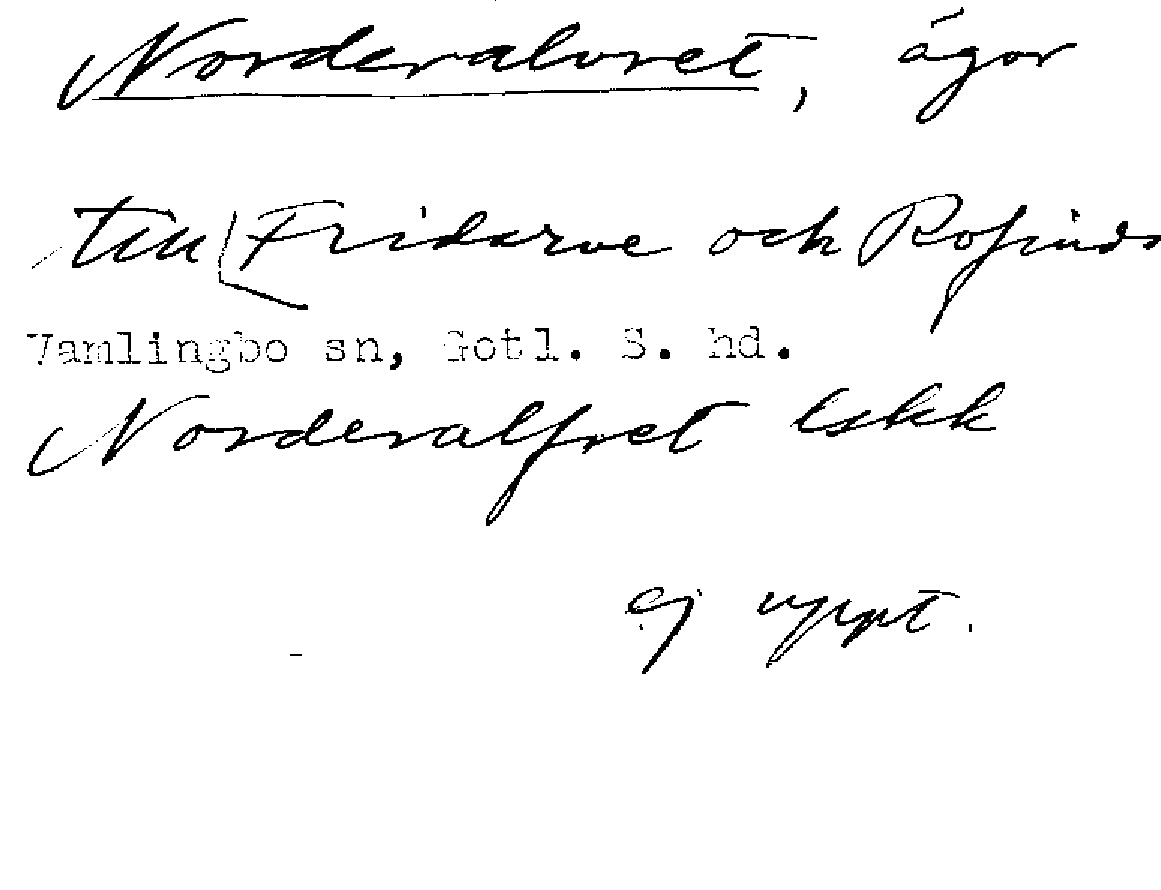 Norderalvret, ägor
till Fridarve och Rofinds
Vamlingbo sn, Gotl. S. hd.
Norderalfret
ej uppt.